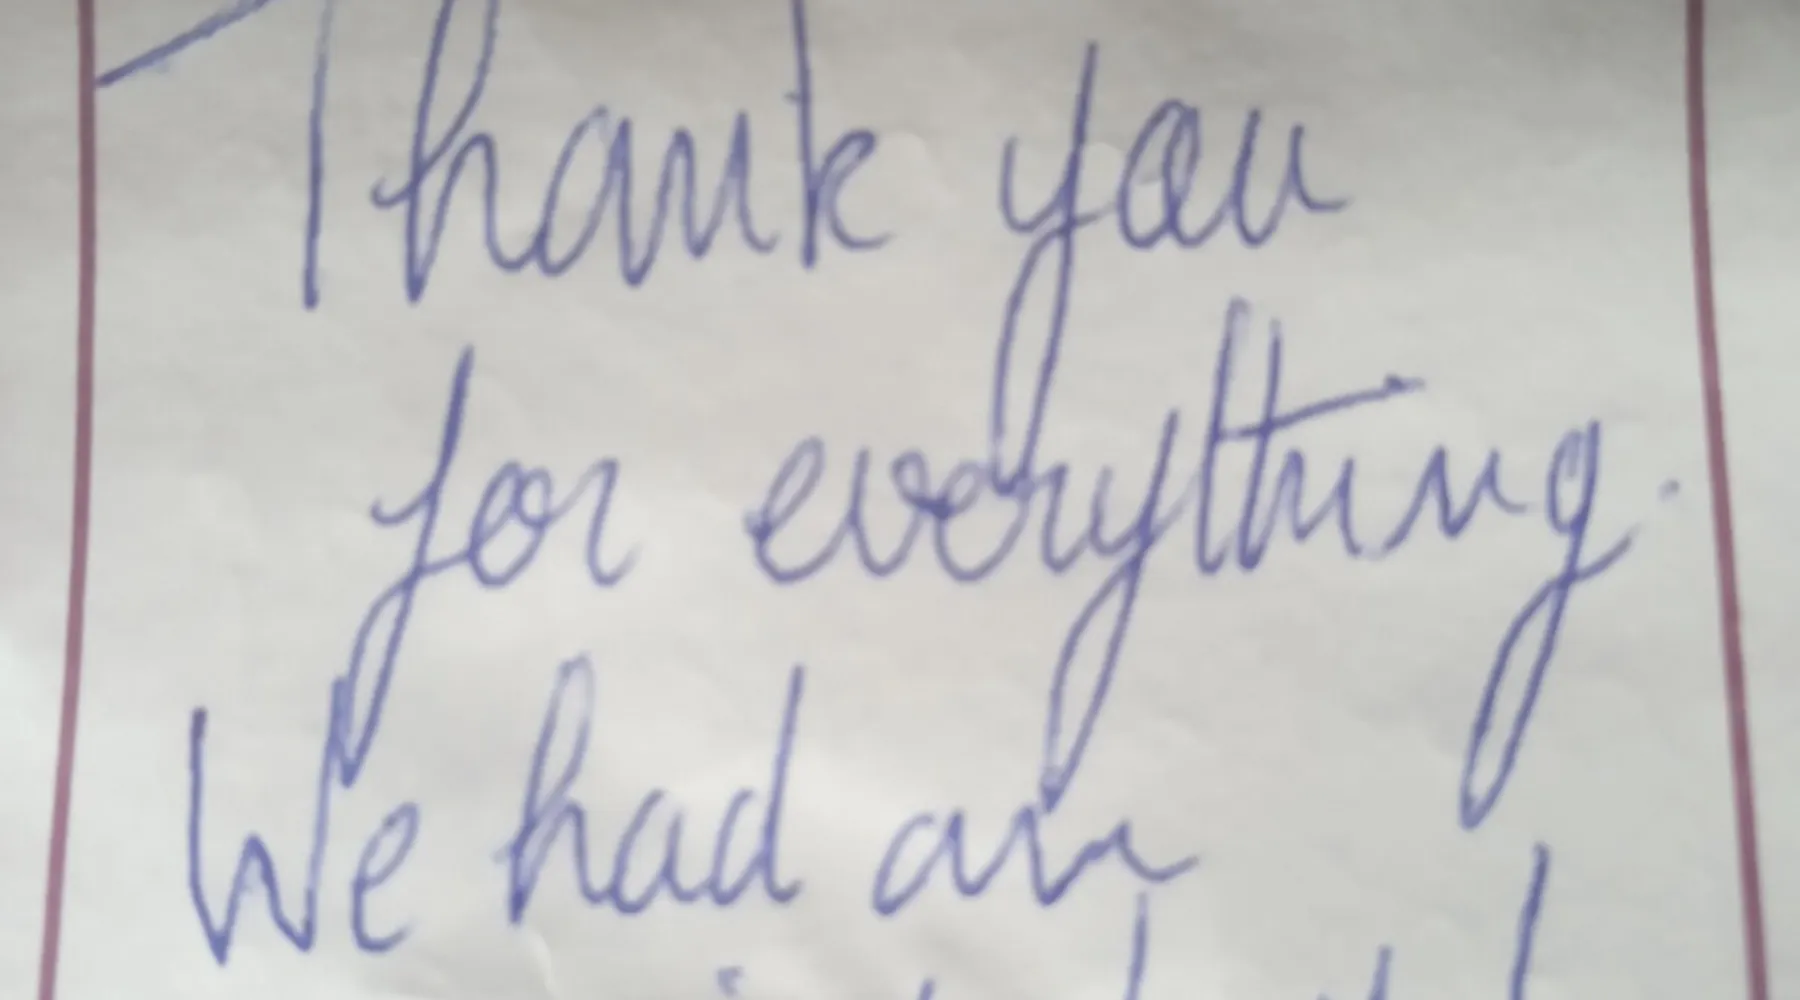 Thank you
for everything.
We had an